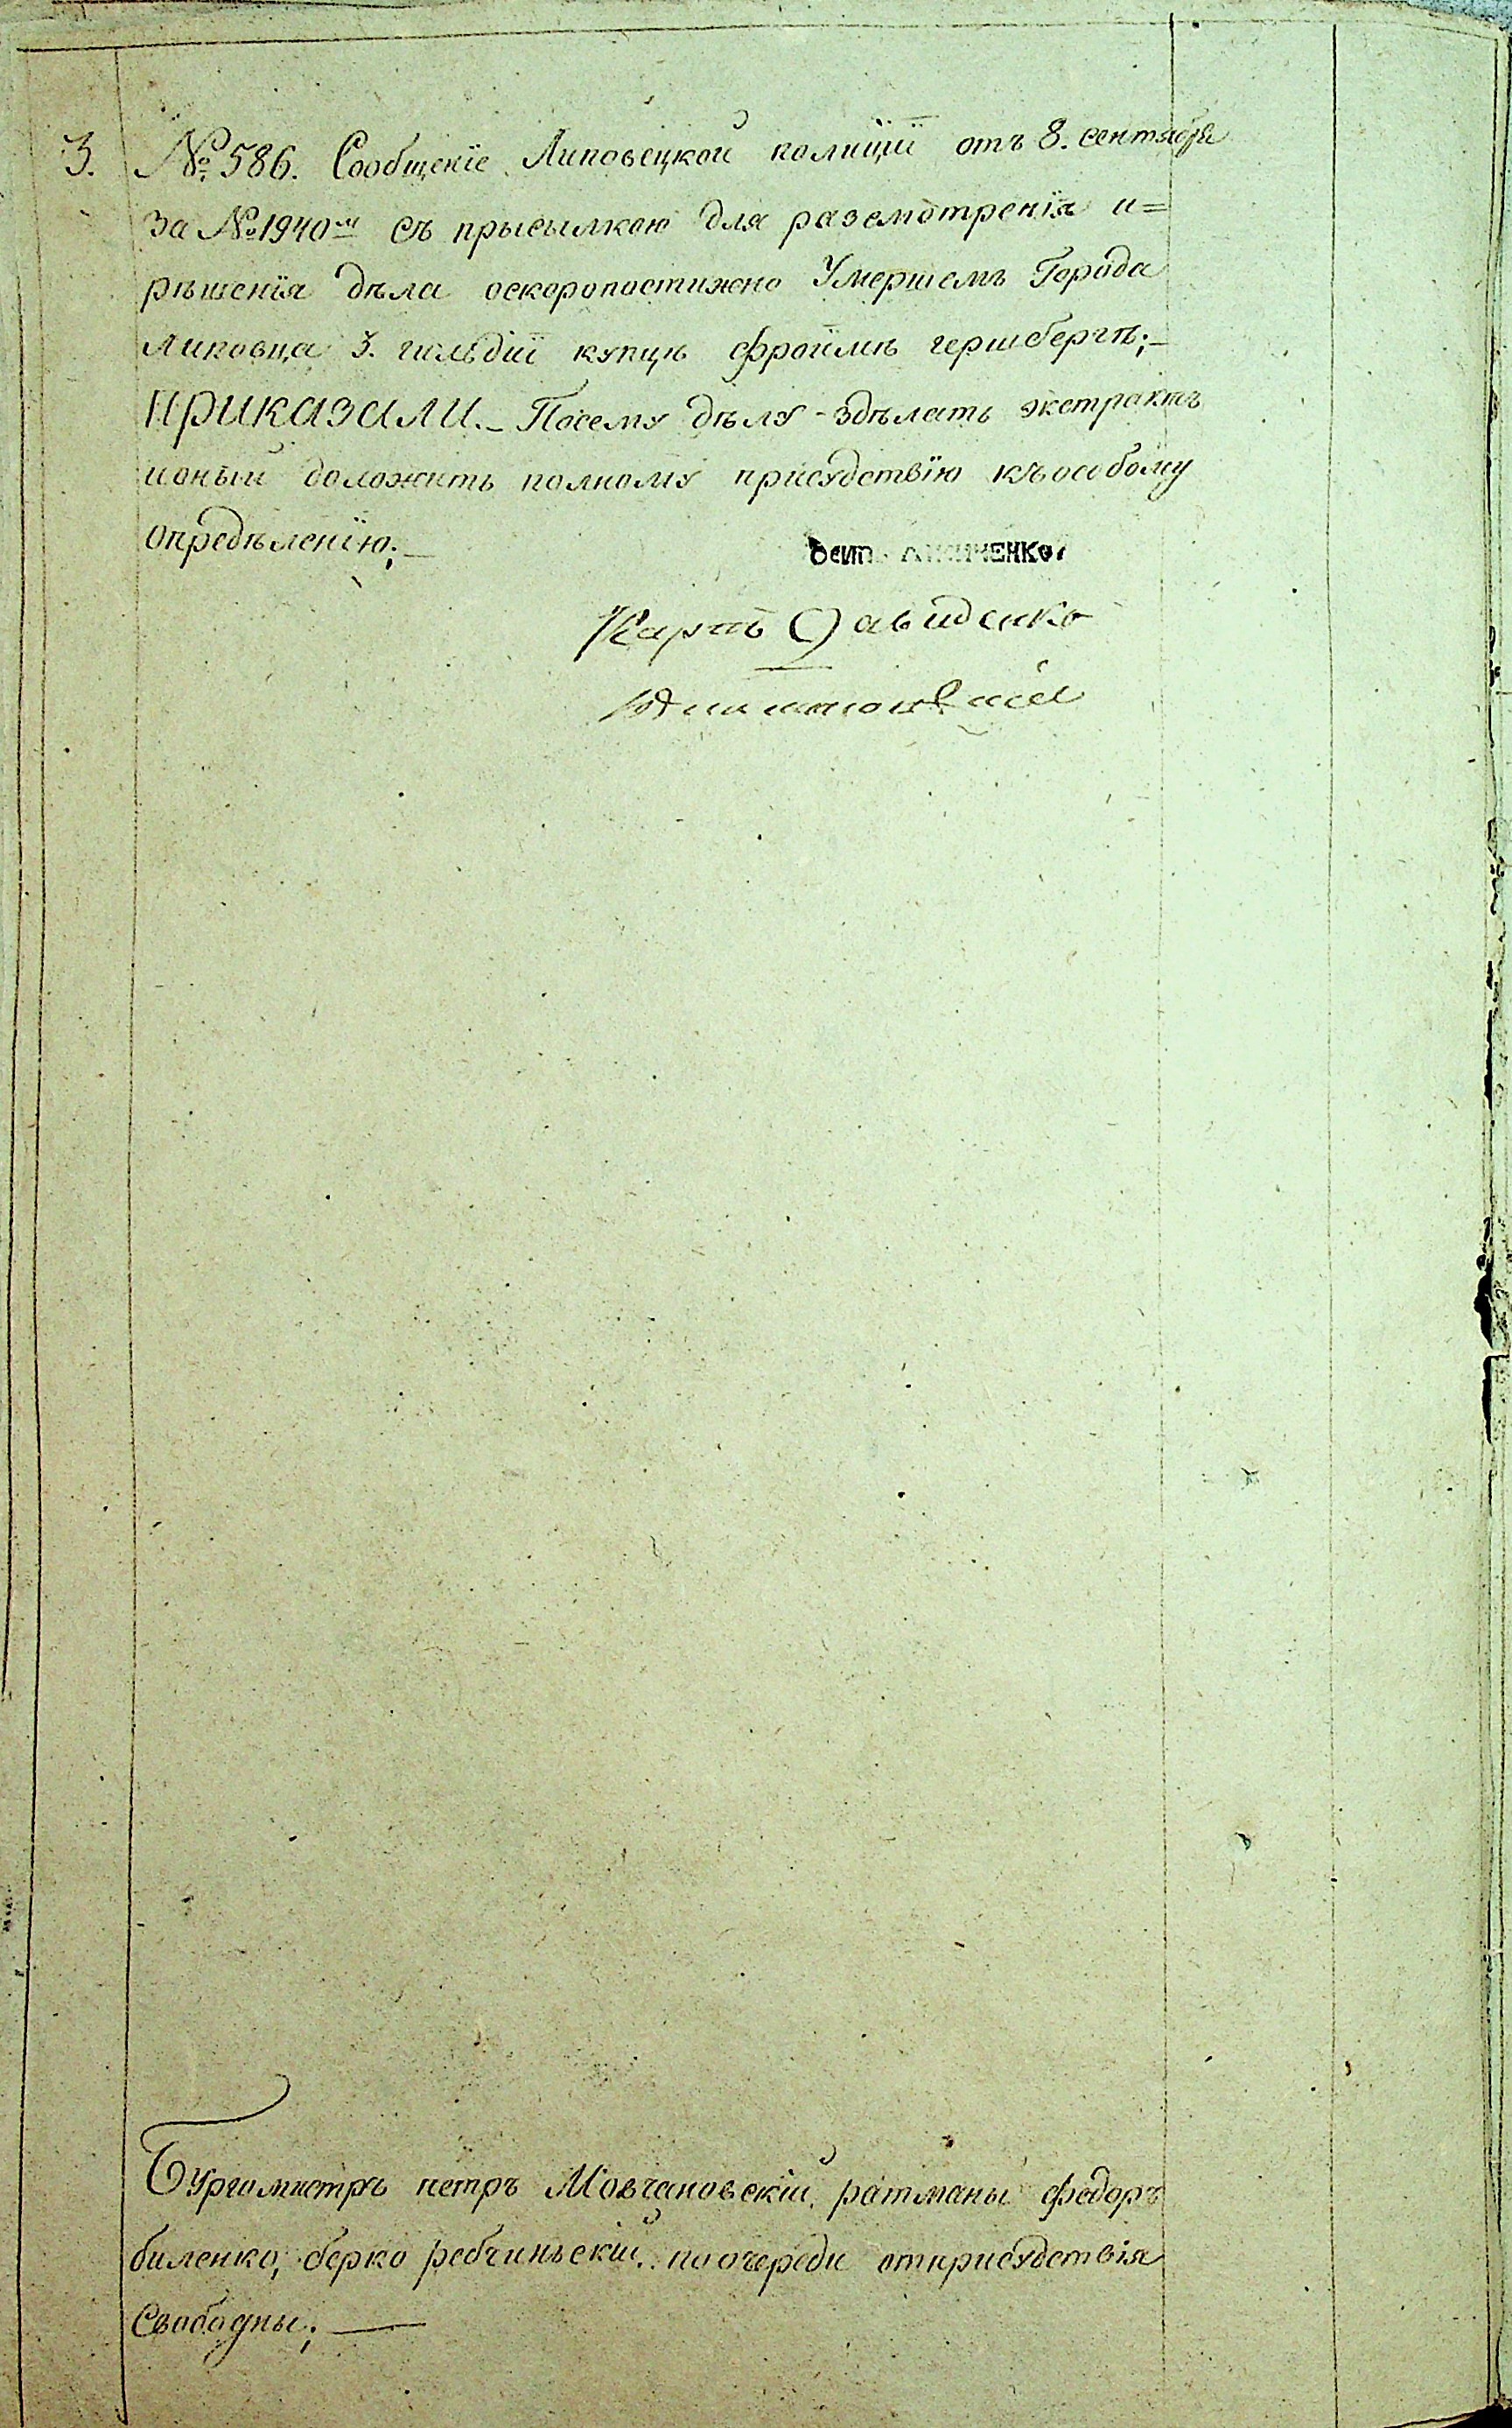 3. №586. Сообщенїе Липовецкой полицїи отъ 8. сентября
за №1940м съ прысылкою для разсмотренїя и=
рѣшенїя дѣла оскоропостижно Умершемъ Города
Липовца 3. гильдїи купцѣ фроймѣ гершбергѣ;–
ПРИКАЗАЛИ.– Посему дѣлу – здѣлать экстрактъ
ионый доложить полному присудствїю къособому
определенїю;–
Давиденко
Бургомистръ петръ Мовчановскїй, ратманы федоръ
биленко, берко ребчиньскїй, поочереди отприсудствїя
Свободны;—